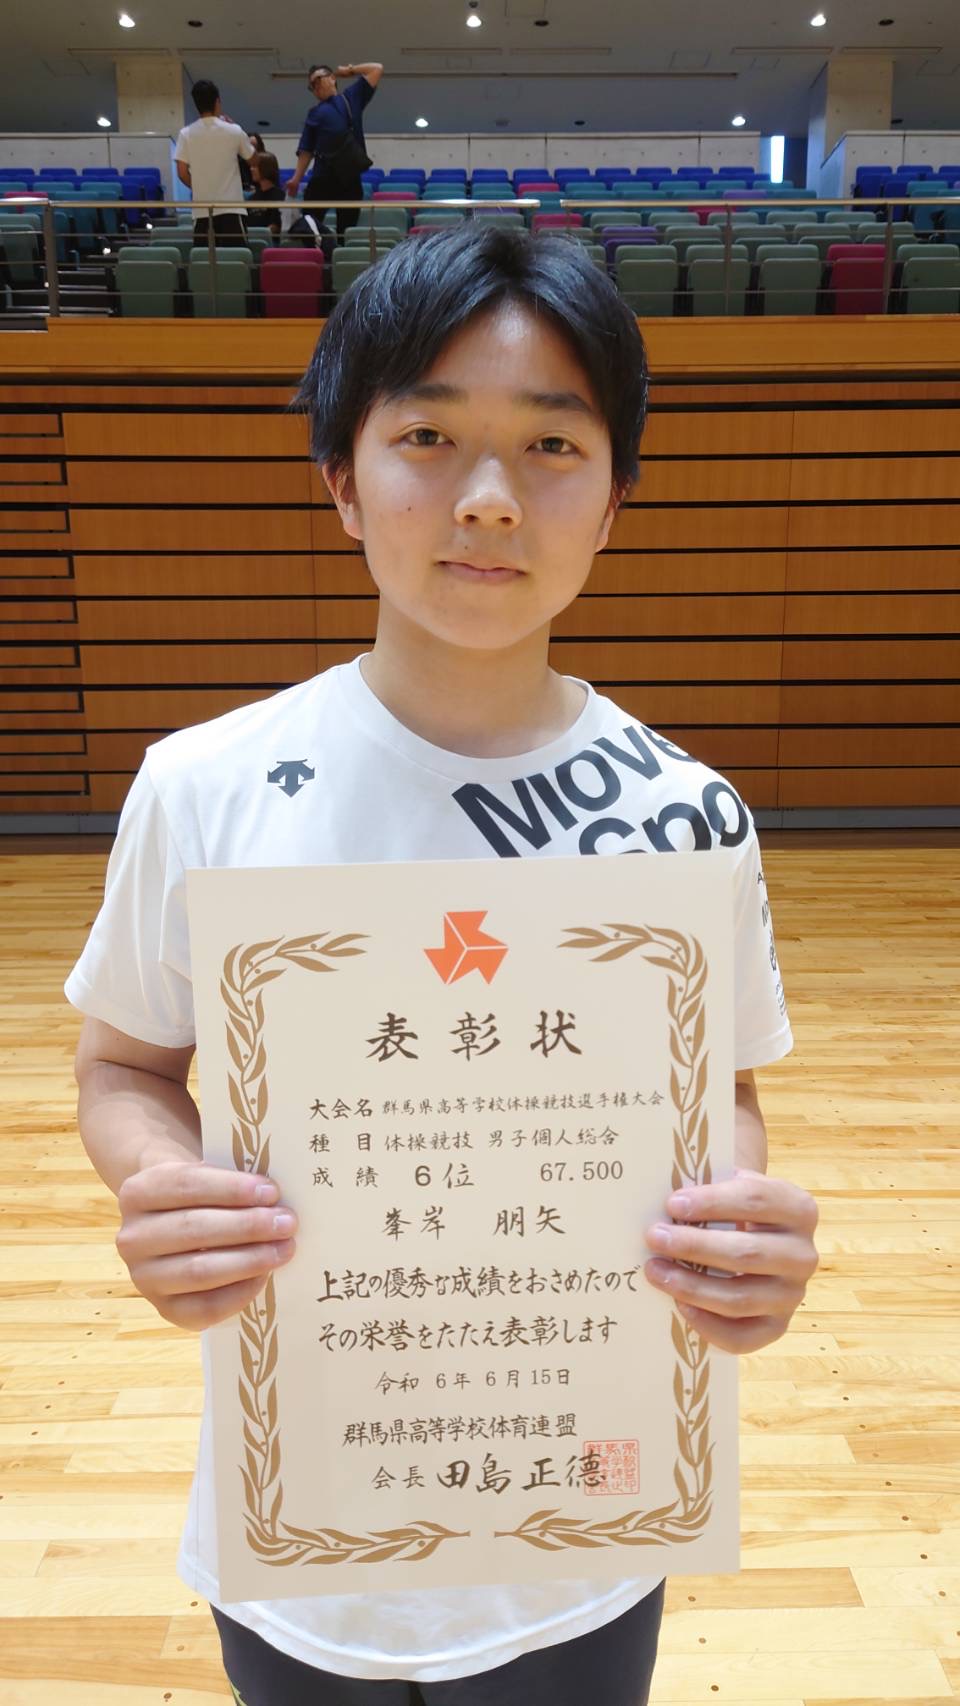 Move
Spo
表彰状
大会名 群馬県高等学校体操競技選手権大会
種目 体操競技 男子個人総合
成績 6位 67.500
峯岸 朋矢
上記の優秀な成績をおさめたので
その栄誉をたたえ表彰します
令和 6年 6月15日
群馬県高等学校体育連盟
会長 田島 正德